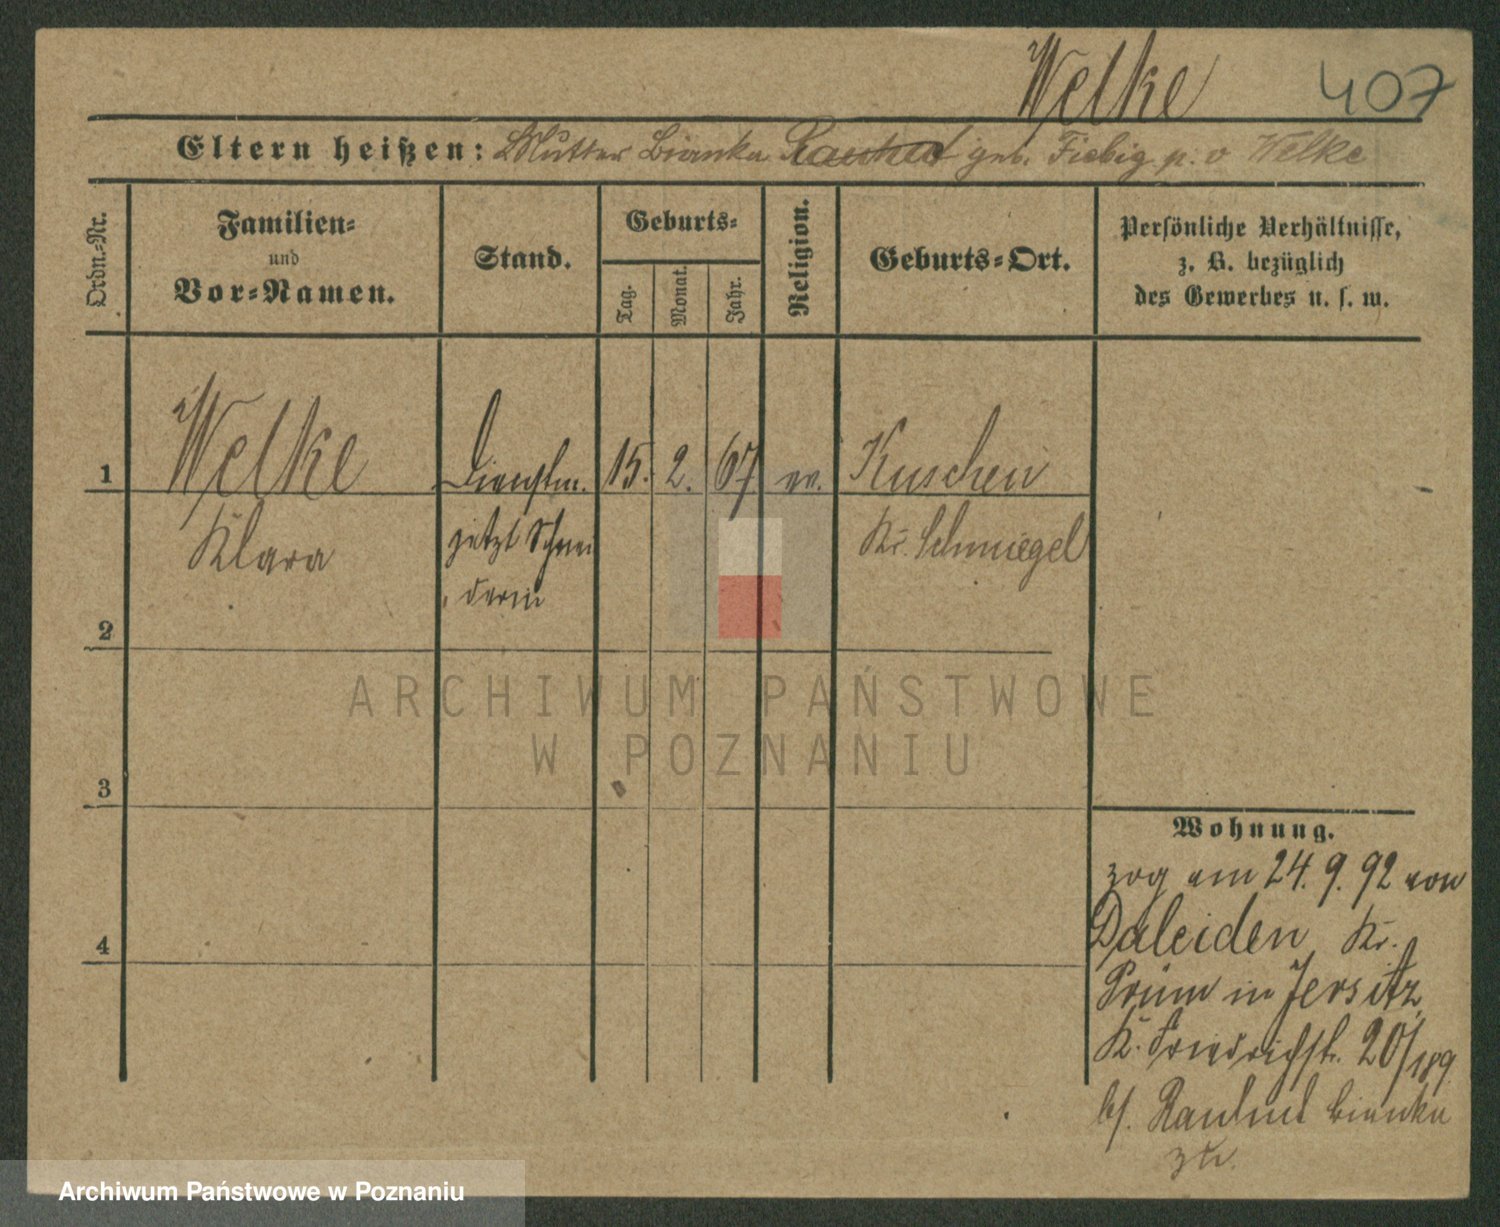 Welke 407
Eltern heißen: Mutter Bianka geb. Fiebig p. v Welke
Ordn.-Nr.
Familien-
und
Vor-Namen.
Stand.
Geburts-
Tag.
Monat.
Jahr.
Religion.
Geburts-Ort.
Persönliche Verhältnisse,
z. B. bezüglich
des Gewerbes u. s. w.
1 Welke Dienstm. 15. 2. 67 ev. Kuschen
Klara jetzt Schnei Kr. Schmiegel
derin
2
3
4
ARCHIWUM PAŃSTWOWE
W POZNANIU
Wohnung.
zog am 24. 9. 92 von
Daleiden Kr.
Prüm in Jersitz
K. Friedrichstr. 20/189
bei Bianka
zu.
Archiwum Państwowe w Poznaniu